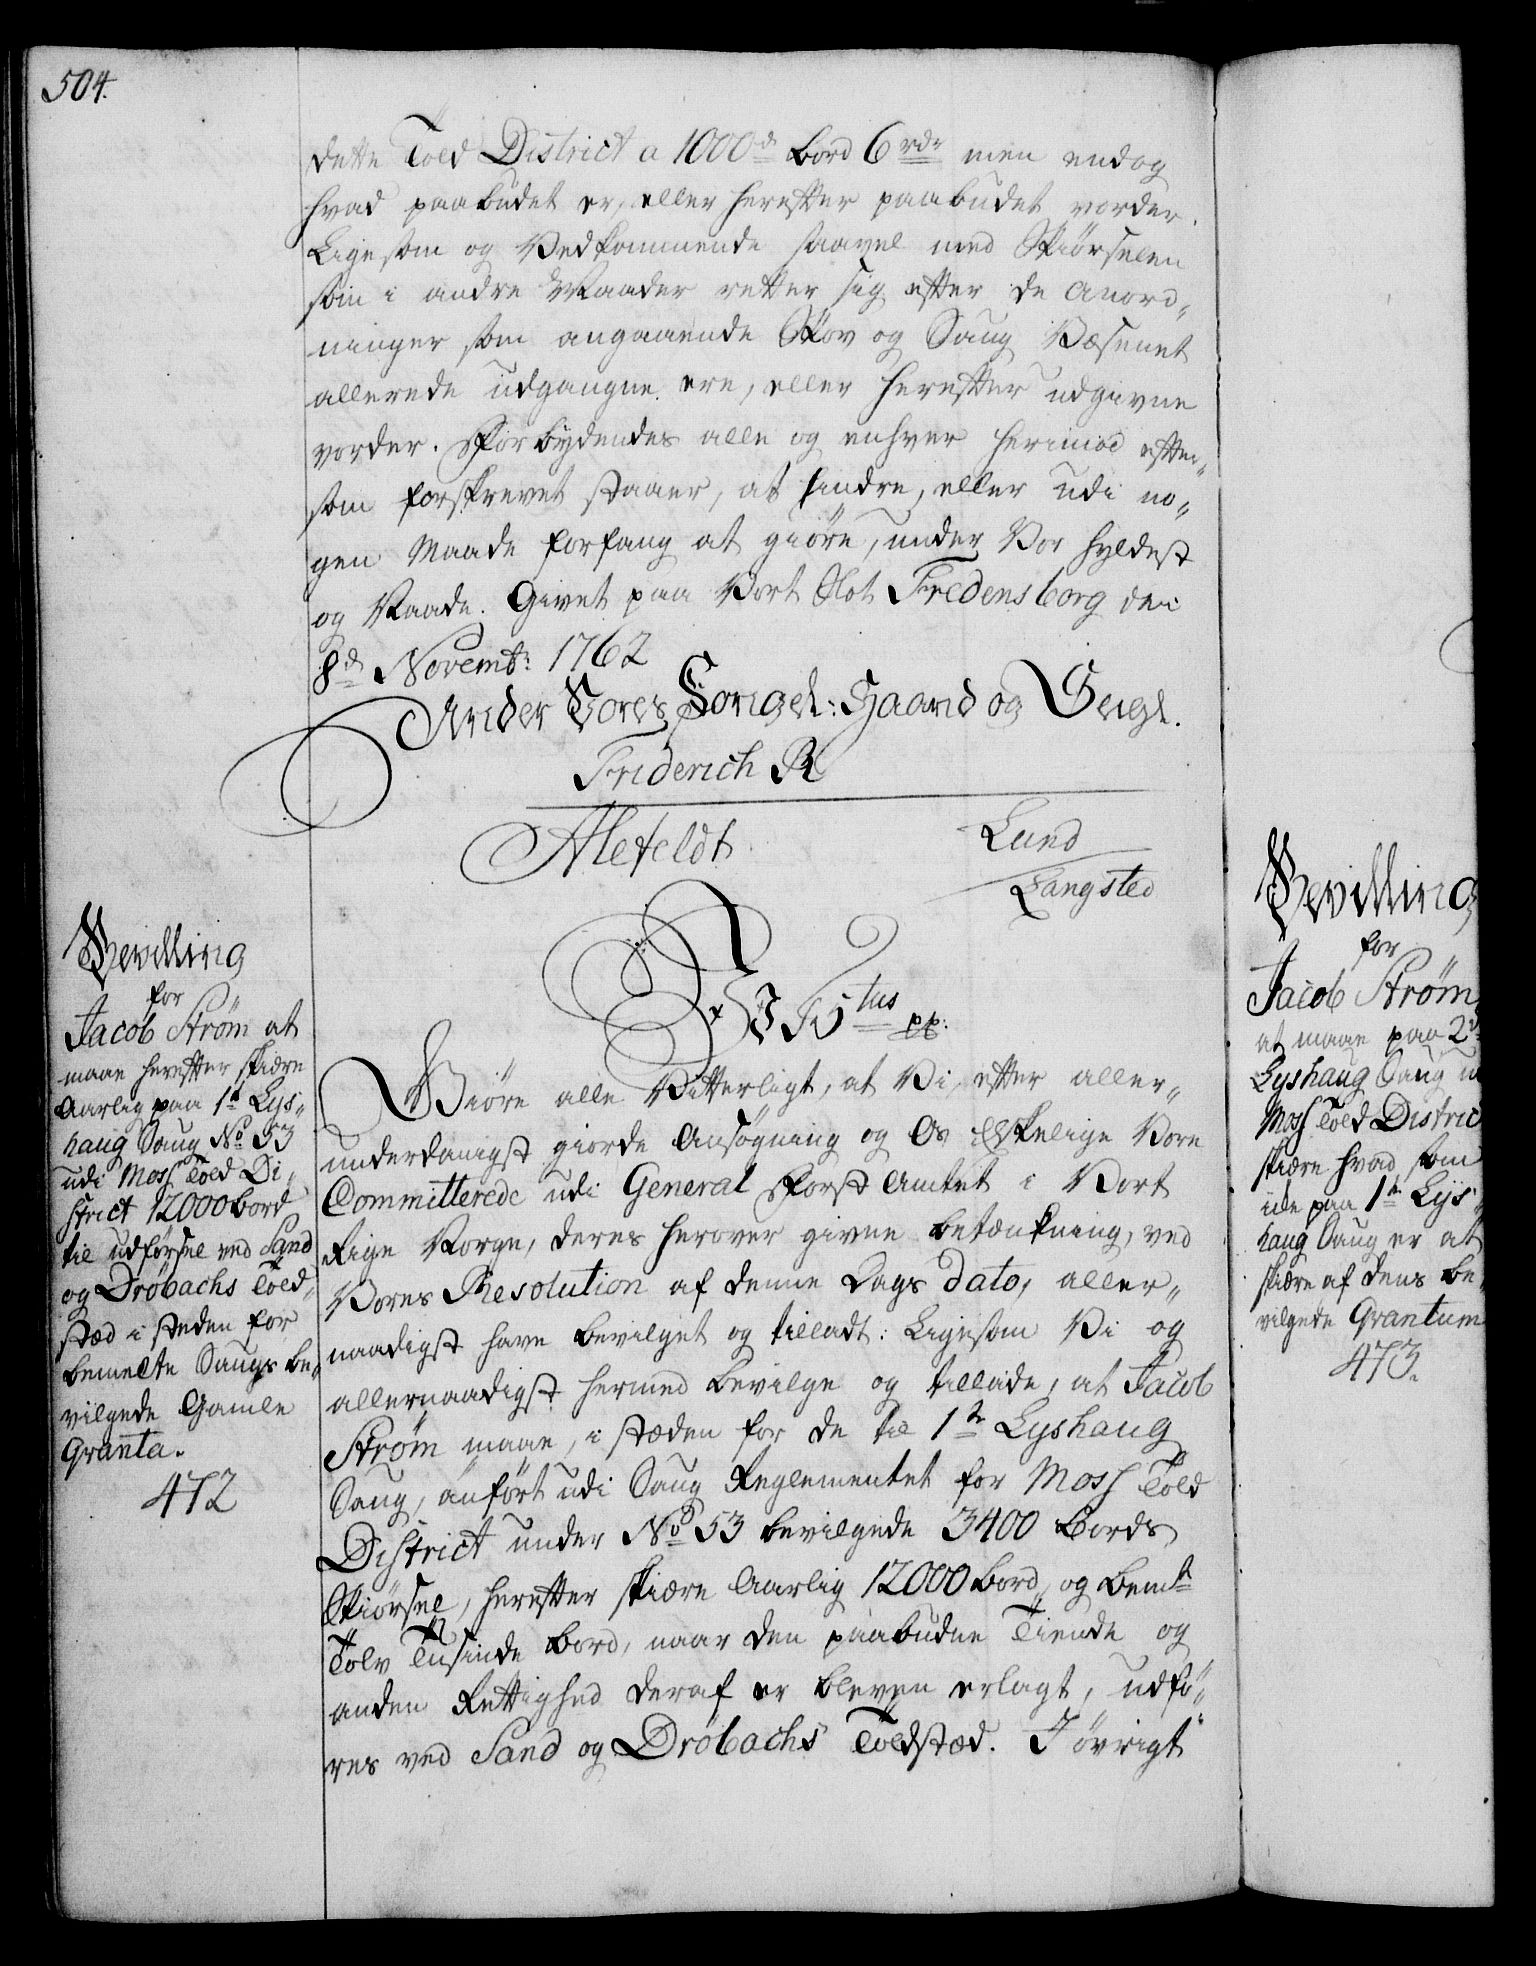 504.
dette Told District a 1000d bord 6 rdr men endog
hvad paabudet er, eller herefter paabudet vorder.
Ligesom og Vedkommende saavel med Skiørselen
som i andre Maader retter sig efter de Anord„
ninger som angaaende Skov og Saug Væsenet
allerede udgangne ere, eller herefter udgivne
vorder. Forbydendes alle og enhver herimod efter„
som forskrevet staaer, at hindre, eller udi no„
gen Maade forfang at giöre, under Vor hyldest
og Naade. Givet paa Vort Slot Fredensborg den
8d Novemb: 1762
Under Vores Kongel: Haand og Seigl.
Friderich R
Alefeldt
Lund
Langsted
Bevilling
for
Jacob Strøm at
maae herefter skiære
Aarlig paa 1te Lys„
haug Saug No 53
udi Moss Told Di„
strict 12000 bord
til udførsel ved Sand
og Drøbachs Told„
stæd i steden for
bemelte Saugs be„
vilgede Gamle
Qvanta.
472
Fr 5tus pp:
Giöre alle Vitterligt, at Vi, efter aller„
underdanigst giorde Ansøgning og Os Elskelige Vore
Committerede udi General Forst Amtet i Vort
Rige Norge, deres herover givne betænkning, ved
Vores Resolution af denne Dags dato, aller„
naadigst have bevilget og tilladt: Ligesom Vi og
allernaadigst hermed bevilge og tillade, at Jacob
Strøm maae, i stæden for de til 1te Lyshaug
Saug, anført udi Saug Reglementet for Moss Told
District under No 53 bevilgede 3400 bords
Skiørsel, herefter skiære Aarlig 12000 bord, og bemte
Tolv Tusinde bord, naar den paabudne Tiende og
anden Rettighed deraf er bleven erlagt, udfø„
res ved Sand og Drøbachs Toldstæd. I øvrigt
Bevilling
for
Jacob Strøm
at maae paa 2d
Lyshaug Saug u
Moss Told Distric
skiære hvad som
ide paa 1te Lys„
haug Saug er at
skiære af dens be„
vilgede Qvantum
473.